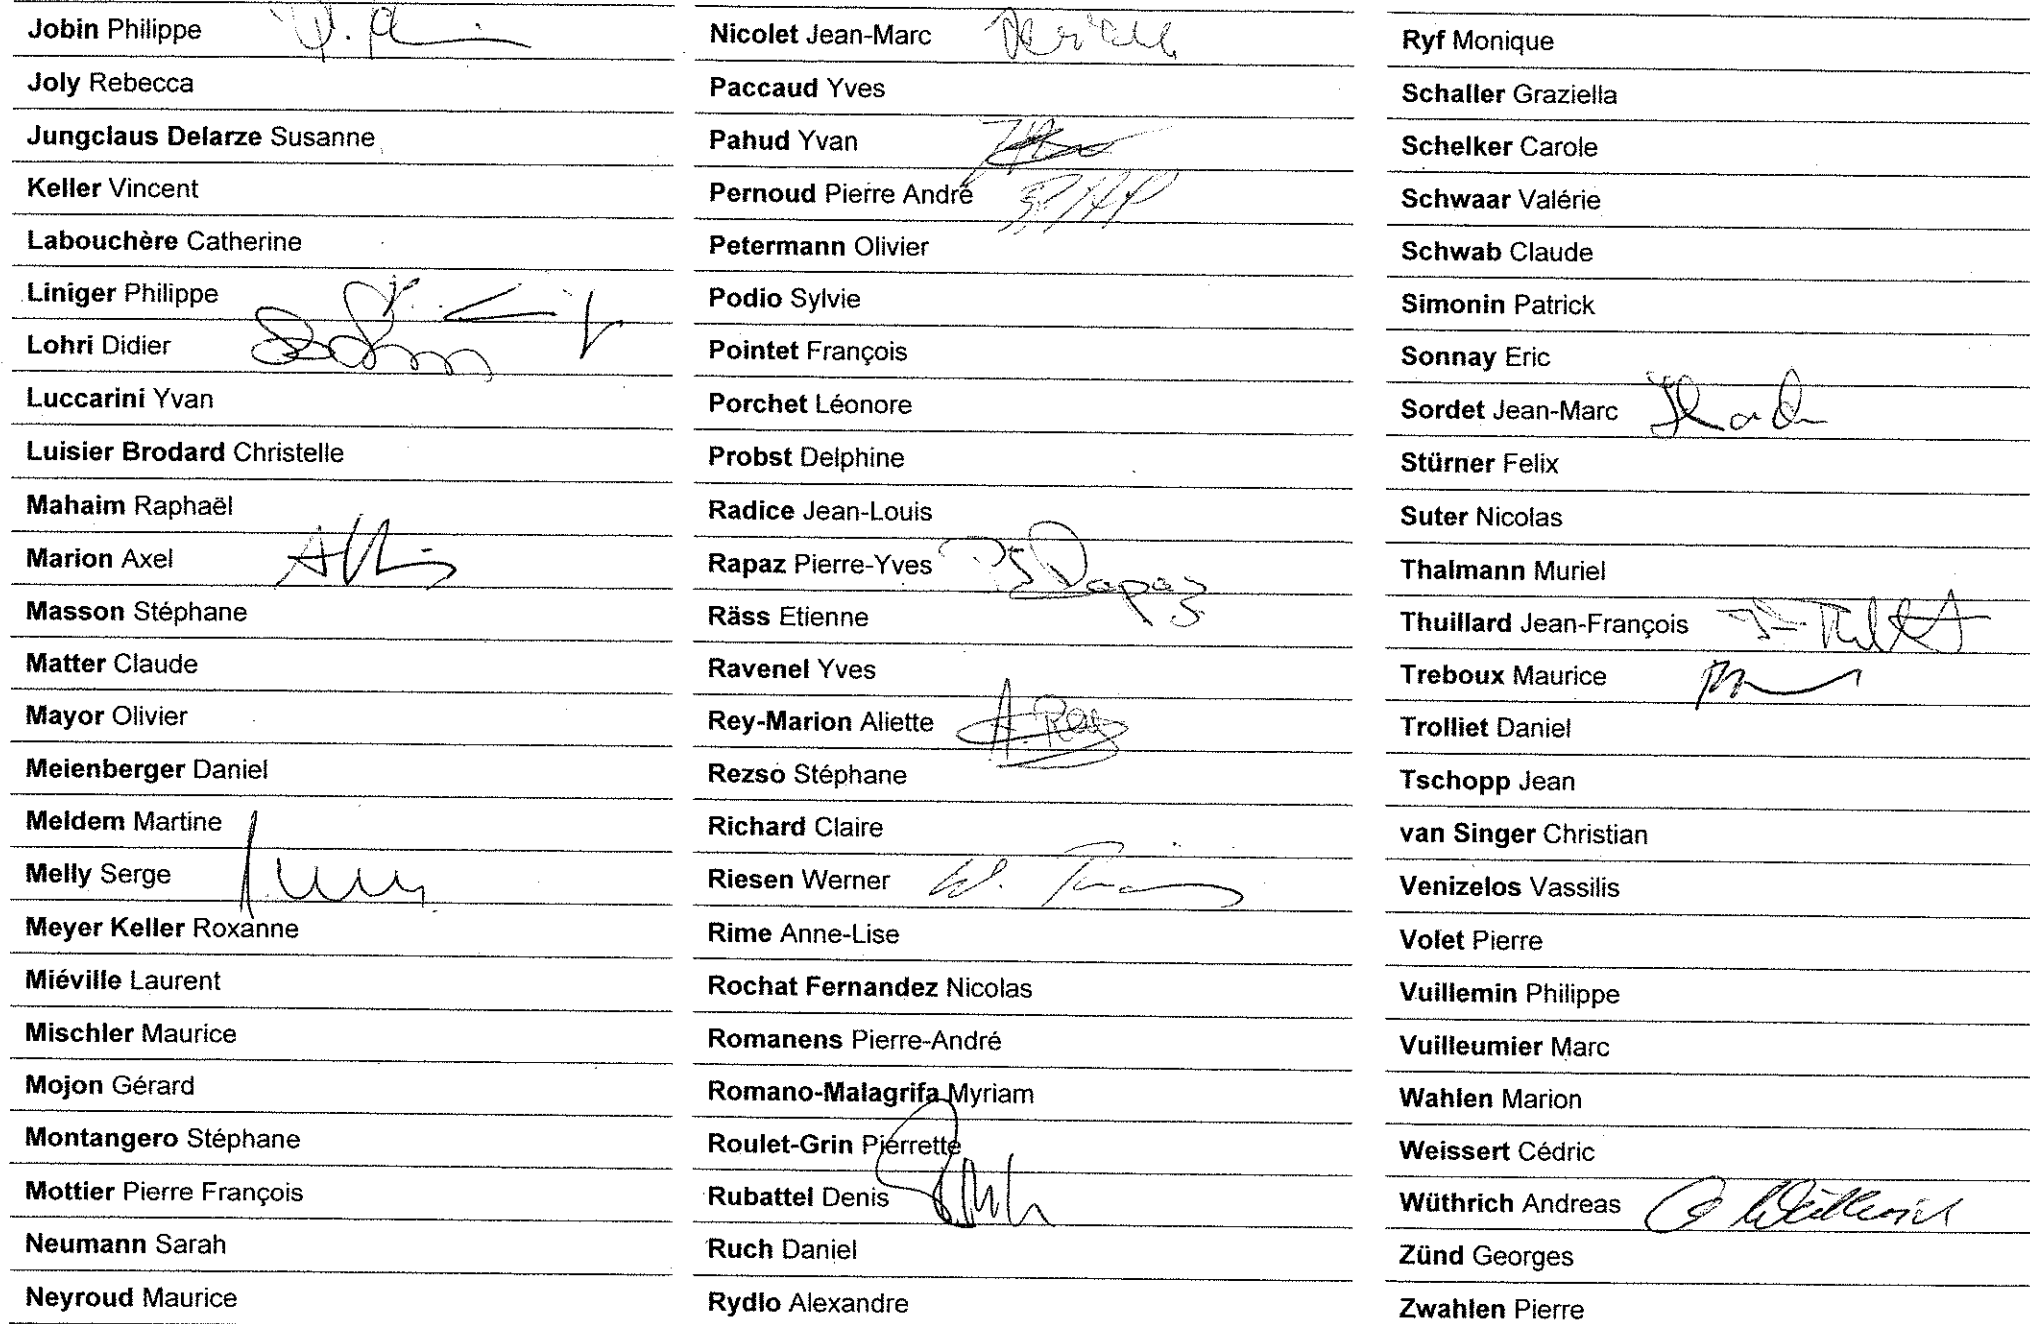 Jobin Philippe
Joly Rebecca
Jungclaus Delarze Susanne
Keller Vincent
Labouchère Catherine
Liniger Philippe
Lohri Didier
Luccarini Yvan
Luisier Brodard Christelle
Mahaim Raphaël
Marion Axel
Masson Stéphane
Matter Claude
Mayor Olivier
Meienberger Daniel
Meldem Martine
Melly Serge
Meyer Keller Roxanne
Miéville Laurent
Mischler Maurice
Mojon Gérard
Montangero Stéphane
Mottier Pierre François
Neumann Sarah
Neyroud Maurice
Nicolet Jean-Marc
Paccaud Yves
Pahud Yvan
Pernoud Pierre André
Petermann Olivier
Podio Sylvie
Pointet François
Porchet Léonore
Probst Delphine
Radice Jean-Louis
Rapaz Pierre-Yves
Räss Etienne
Ravenel Yves
Rey-Marion Aliette A. Rey
Rezso Stéphane
Richard Claire
Riesen Werner
Rime Anne-Lise
Rochat Fernandez Nicolas
Romanens Pierre-André
Romano-Malagrifa Myriam
Roulet-Grin Pierrette
Rubattel Denis
Ruch Daniel
Rydlo Alexandre
Ryf Monique
Schaller Graziella
Schelker Carole
Schwaar Valérie
Schwab Claude
Simonin Patrick
Sonnay Eric
Sordet Jean-Marc
Stürner Felix
Suter Nicolas
Thalmann Muriel
Thuillard Jean-François
Treboux Maurice
Trolliet Daniel
Tschopp Jean
van Singer Christian
Venizelos Vassilis
Volet Pierre
Vuillemin Philippe
Vuilleumier Marc
Wahlen Marion
Weissert Cédric
Wüthrich Andreas
Zünd Georges
Zwahlen Pierre